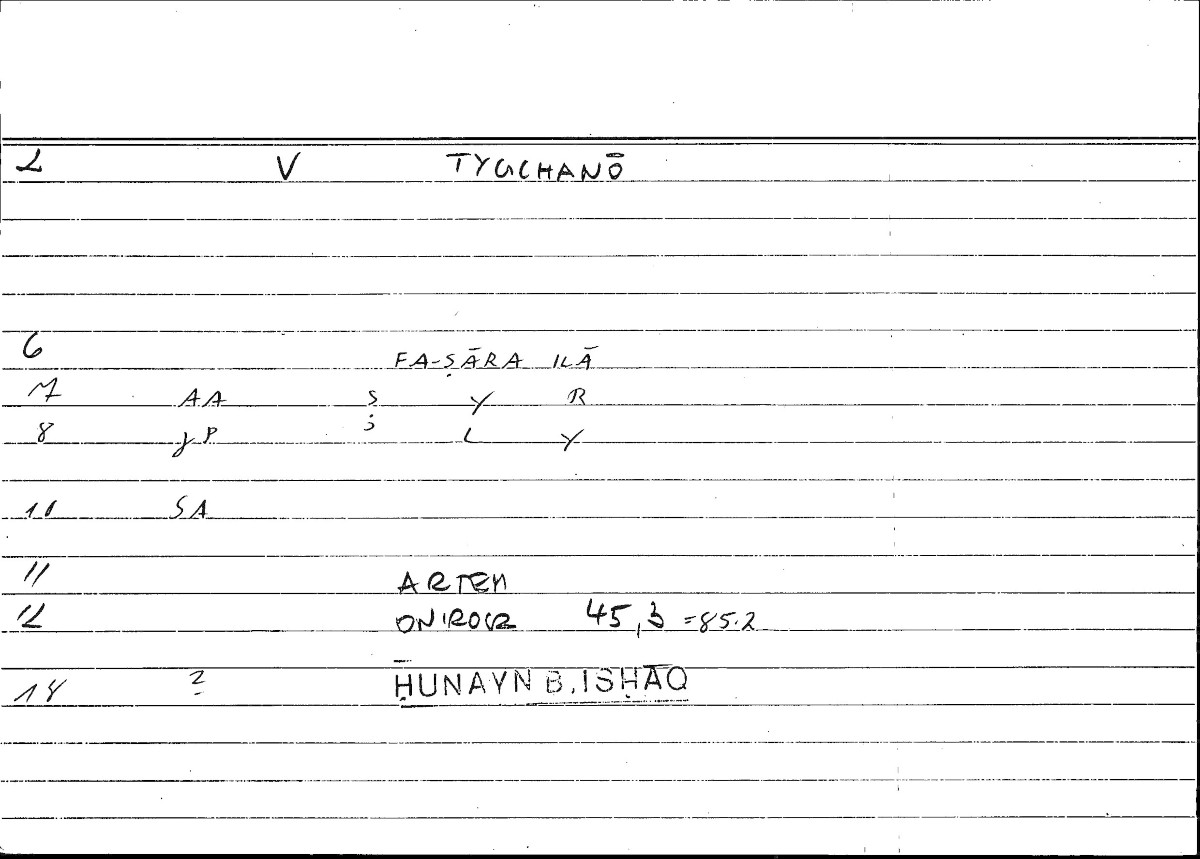 2 V TYGCHANŌ
6 FA-ṢĀRA ILĀ
7 AA Ṣ Y R
8 jP ʾ L Y
10 SA
11 ARTEM
12 ONIROCR 45,3 =85.2
18 2 ḤUNAYN B. ISḤĀQ